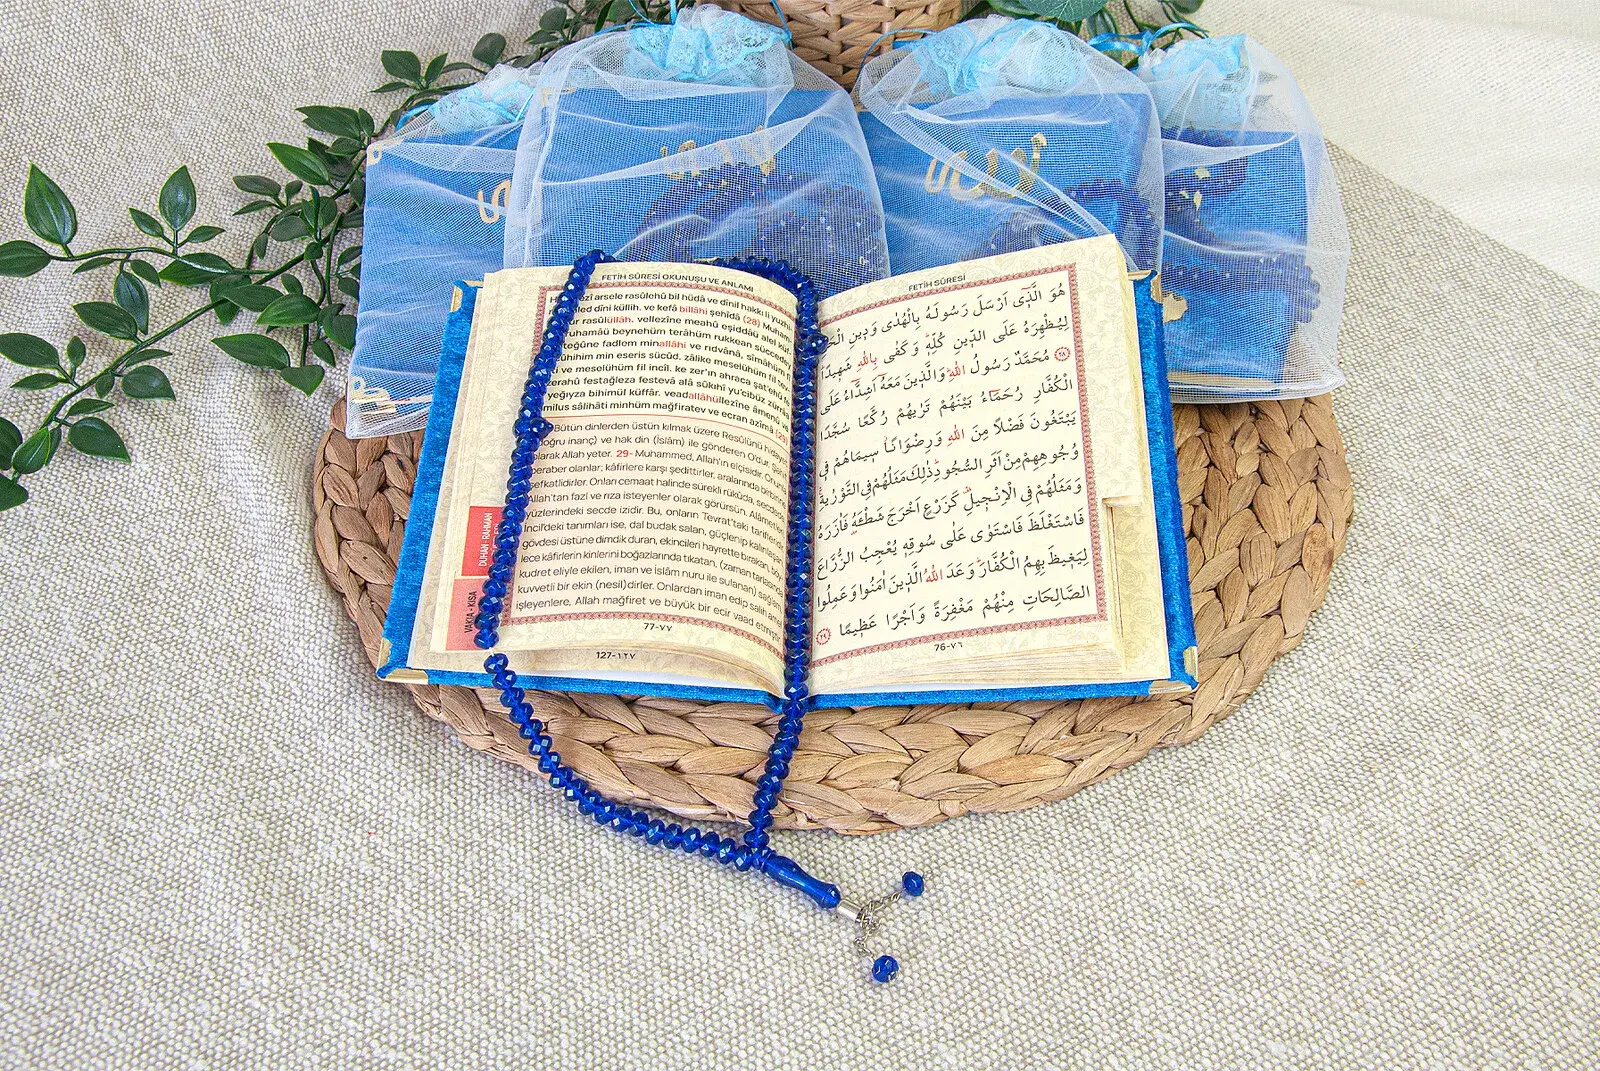 FETİH SÛRESİ OKUNUŞU VE ANLAMI
arsele rasûlehû bil hüdâ ve dînil hakkı li yuzhi
dîni küllih. ve kefâ billâhi şehîdâ (28) Muham
rasûlüllâh. vellezîne meahû eşiddâü alel küf
ruhamâü beynehüm terâhüm rukkean sücced
teğûne fadlem minallâhi ve rıdvânâ, sîmâhüm
cûhihim min eseris sücûd. zâlike meselühüm fit
ve meselühüm fil incîl. ke zer'ın ahrace şat'
zerahû festağleza festevâ alâ sûkıhî yu'cibüz zürrâa
yeğıyza bihimül küffâr. veadallâhüllezîne âmenû
milus sâlihâti minhüm mağfiratev ve ecran azîmâ (29)
Bütün dinlerden üstün kılmak üzere Resûlünü hidayet
(doğru inanç) ve hak din (İslâm) ile gönderen O'dur. Şahit
olarak Allah yeter. 29- Muhammed, Allah'ın elçisidir. Onunla
beraber olanlar; kâfirlere karşı şedittirler, aralarında birbirine
şefkatlidirler. Onları cemaat halinde sürekli rükûda, secdede
Allah'tan fazl ve rıza isteyenler olarak görürsün. Alâmetleri
yüzlerindeki secde izidir. Bu, onların Tevrat'taki tarifleridir.
İncil'deki tanımları ise, dal budak salan, güçlenip kalınlaşan,
gövdesi üstüne dimdik duran, ekincileri hayrette bırakan, böy-
lece kâfirlerin kinlerini boğazlarında tıkatan, (zaman tarlasında
kudret eliyle ekilen, iman ve İslâm nuru ile sulanan) sağlam
kuvvetli bir ekin (nesil)dirler. Onlardan iman edip salih amel
işleyenlere, Allah mağfiret ve büyük bir ecir vaad etmiştir.
77-٧٧
DUHAN - RAHMAN
VAKIA - KISA
127-١٢٧
FETİH SÛRESİ
هُوَ الَّذٖٓي اَرْسَلَ رَسُولَهُ بِالْهُدٰى وَدٖينِ الْحَقِّ
لِيُظْهِرَهُ عَلَى الدّٖينِ كُلِّهٖ وَكَفٰى بِاللّٰهِ شَهٖيدًا
﴿٢٨﴾ مُحَمَّدٌ رَسُولُ اللّٰهِ وَالَّذٖينَ مَعَهُٓ اَشِدَّٓاءُ عَلَى
الْكُفَّارِ رُحَمَٓاءُ بَيْنَهُمْ تَرٰيهُمْ رُكَّعًا سُجَّدًا
يَبْتَغُونَ فَضْلًا مِنَ اللّٰهِ وَرِضْوَانًا سٖيمَاهُمْ فٖي
وُجُوهِهِمْ مِنْ اَثَرِ السُّجُودِ ذٰلِكَ مَثَلُهُمْ فِي التَّوْرٰيةِ
وَمَثَلُهُمْ فِي الْاِنْجٖيلِ كَزَرْعٍ اَخْرَجَ شَطْـَٔهُ فَاٰزَرَهُ
فَاسْتَغْلَظَ فَاسْتَوٰى عَلٰى سُوقِهٖ يُعْجِبُ الزُّرَّاعَ
لِيَغٖيظَ بِهِمُ الْكُفَّارَ وَعَدَ اللّٰهُ الَّذٖينَ اٰمَنُوا وَعَمِلُوا
الصَّالِحَاتِ مِنْهُمْ مَغْفِرَةً وَاَجْرًا عَظٖيمًا ﴿٢٩﴾
76-٧٦